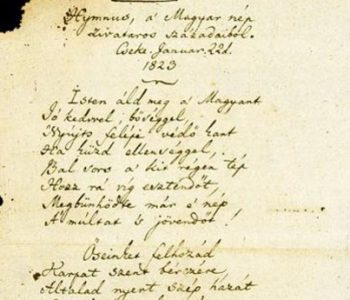 Hymnus, a' Magyar nép
zivataros századaiból.
Cseke. Januar. 22d.
1823
Isten áldd meg a' Magyart
Jó kedvvel, bőséggel,
Nyújts feléje védő kart
Ha küzd ellenséggel,
Bal sors a' kit régen tép
Hozz rá víg esztendőt,
Megbűnhődte már e' nép
A' múltat 's jövendőt!
Őseinket felhozád
Kárpát szent bérczére,
Általad nyert szép hazát